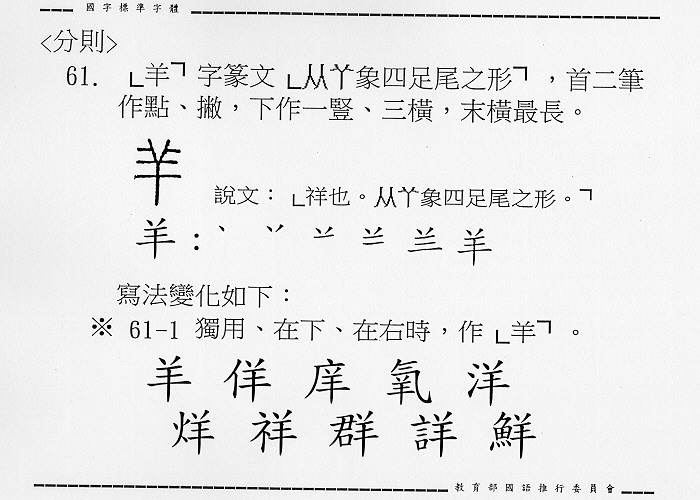 國字標準字體
<分則>
61. 「羊」字篆文「从𢆉象四足尾之形」，首二筆
作點、撇，下作一豎、三橫，末橫最長。
說文：「祥也。从象四足尾之形。」
羊：
寫法變化如下：
※ 61-1 獨用、在下、在右時，作「羊」。
羊 佯 庠 氧 洋
烊 祥 群 詳 鮮
教育部國語推行委員會